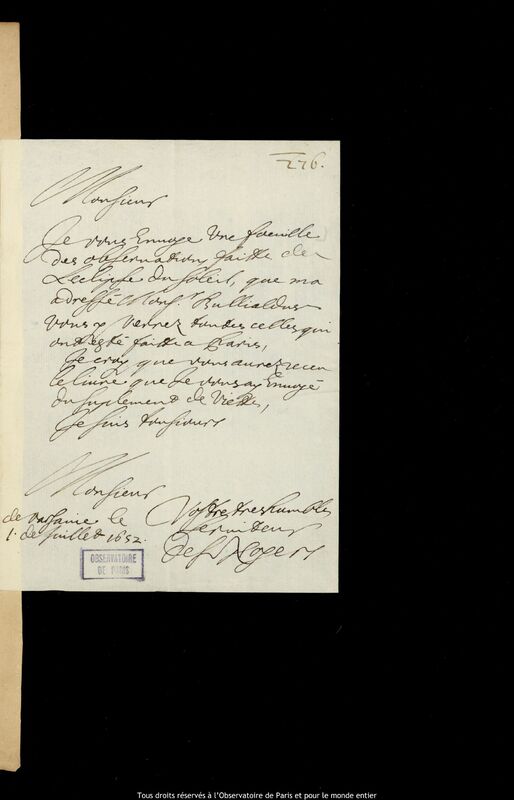 276.
Monsieur
Je vous Envoye Une foeuille
des observations faitte de
L'eclipse du soleil, que ma
adressé Monsr Bullialdus
vous y verrez toutes celles qui
ont esté faitte a Paris,
Je croy que vous aurez receu
le livre que Je vous ay Envoyé
du suplement de Viette,
Je suis tousiours
Monsieur
Vostre tres humble
serviteur
de Varsavie le
1. de Juillet 1652.
Des Noyers
OBSERVATOIRE
DE PARIS
Tous droits réservés à l'Observatoire de Paris et pour le monde entier